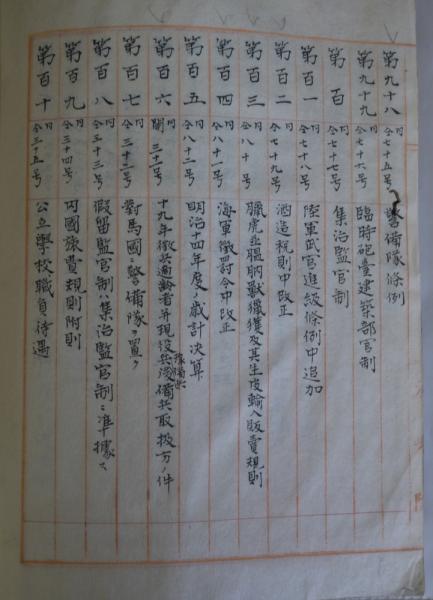 第九十八 仝 仝七十五号 警備隊條例
第九十九 仝 仝七十六号 臨時砲臺建築部官制
第百 仝 仝七十七号 集治監官制
第百一 仝 仝七十八号 陸軍武官進級條例中追加
第百二 仝 仝七十九号 酒造税則中改正
第百三 仝 仝八十号 臘虎並膃肭獣獵獲及其生皮輸入販賣規則
第百四 仝 仝八十一号 海軍徴罰令中改正
第百五 仝 仝八十二号 明治十四年度ノ歳計決算
第百六 閣 三十一号 十九年徴兵適齢者并現役兵豫備兵後備兵取扱方ノ件
第百七 仝 仝三十二号 對馬國ニ警備隊ヲ置ク
第百八 仝 仝三十三号 假留監官制ハ集治監官制ニ準據ス
第百九 仝 仝三十四号 内國旅費規則附則
第百十 仝 仝三十五号 公立學校職員待遇